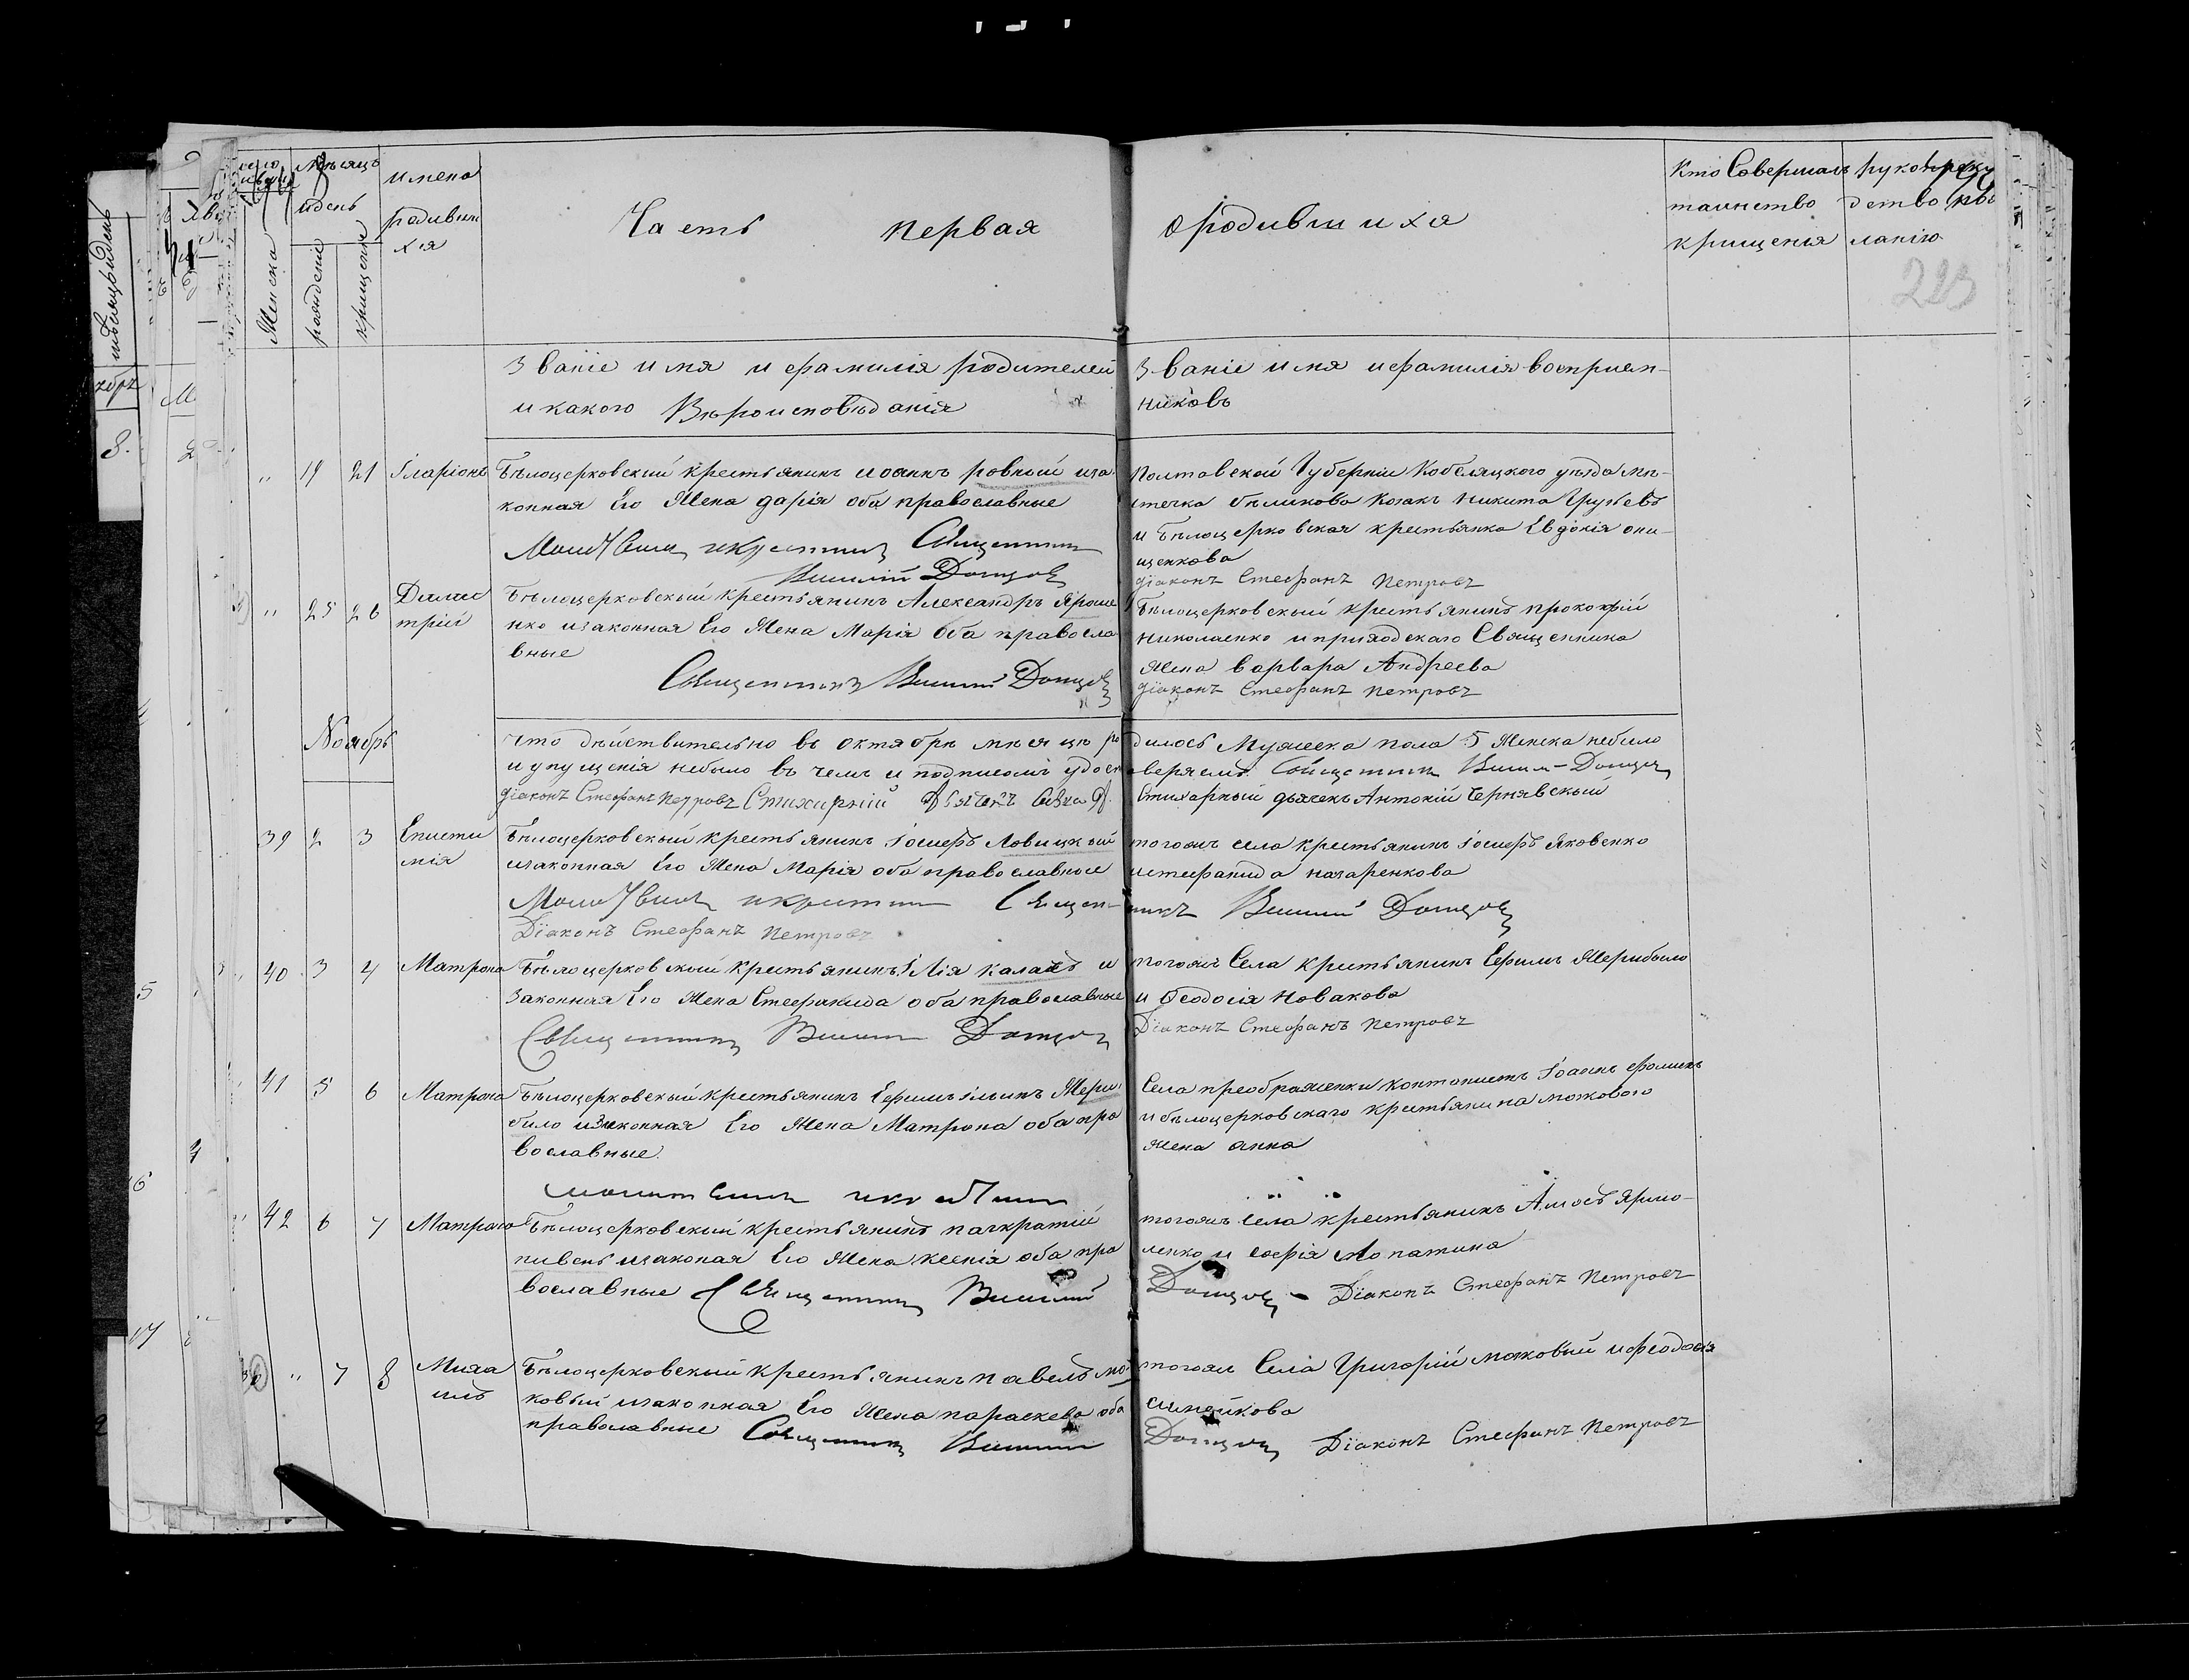 мѣсяцъ
и день
имена
родивши
хся
Женска
рожденіе
крищеніе
Часть первая
о родившихся
Кто Совершалъ
таинство
крищенія
руко
детво
ланію
223
Званіе имя и фамилія родителей
и какого Вѣроисповѣданія
Званіе имя и фамилія восприем-
никовъ
" 19 21 Іларіонъ Бѣлоцерковский крестьянинъ иоаннъ ровный иза
конная Его Жена дарія оба православные
Молитвилъ и крестилъ Священникъ
Василій Донцовъ
Полтавской Губерніи Кобеляцкого уѣзда мѣ-
стечка бѣликова Козакъ Никита Грузьевъ
и Бѣлоцерковская крестьянка Евдокія они-
щенкова
діаконъ Стефанъ Петровъ
" 25 26 Дими
трій
Бѣлоцерковскый крестьянинъ Александръ Яроше
нко изаконная Его Жена Марія оба правосла
вные
Священникъ Василій Донцовъ
Бѣлоцерковскый крестьянинъ прокофій
николаенко и приходскаго Священника
жена варвара Андреева
діаконъ Стефанъ Петровъ
Ноябрь
что дѣйствительно въ октябрѣ мѣсяцѣ ро
и упущенія небыло въ чемъ и подписомъ удост
діаконъ Стефанъ Петровъ Стихарній Дьячекъ
дилось Мужеска пола 5 Женска небило
оверяемъ Священникъ Василій Донцовъ
Стихарный дьячекъ Антоній Чернявскый
39 2 3 Еписти
мія
Бѣлоцерковскый крестьянинъ Іосифъ Ловицкый
изаконная Его Жена Марія оба православные
Молитвилъ и крестилъ Священ-
Діаконъ Стефанъ Петровъ
тогожъ села крестьянинъ Іосифъ Яковенко
истефанида назаренкова
никъ Василій Донцовъ
40 3 4 Матрона Бѣлоцерковскый крестьянинъ Ілія калашъ и
Законная Его Жена Стефанида оба православные
Священникъ Василій Донцовъ
тогожъ Села крестьянинъ Ефимъ Жерибыло
и Феодосія Новакова
Діаконъ Стефанъ Петровъ
41 5 6 Матрона Бѣлоцерковскый крестьянинъ Ефимъ ілыинъ Жери
било изаконная Его Жена Матрона оба пра
вославные
молитвилъ и крестилъ
Села преображенки Контонистъ Іоаннъ фоминъ
и бѣлоцерковскаго крестьянинаможового
жена анна
42 6 7 Матрона Бѣлоцерковский крестьянинъ панкратій
пивень изаконая Его Жена ксенія оба пра
вославные Священникъ Василій
тогожъ села крестьянинъ Амосъ Ярмо-
ленко и софія Лопатина
Донцовъ Діаконъ Стефанъ Петровъ
" 7 8 Миха
илъ
Бѣлоцерковскый крестьянинъ павелъ мо
ковый изаконная Его Жена параскева оба
православные Священникъ Василій
тогожъ Села Григорій можовый и феодосія
Донцовъ Діаконъ Стефанъ Петровъ